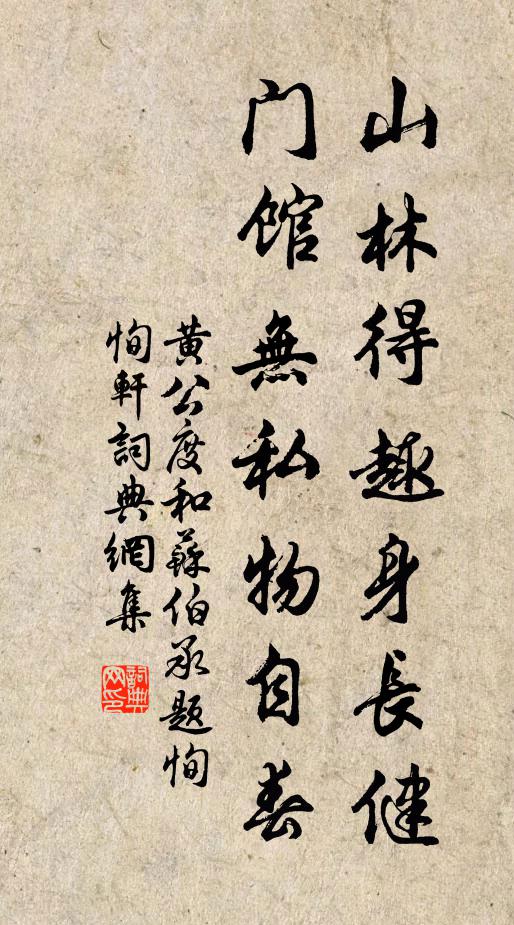 山林得趣身長健
门馆無私物自春
黄公度和蘇伯承题恂
恂軒詞典網集
詞典
网印